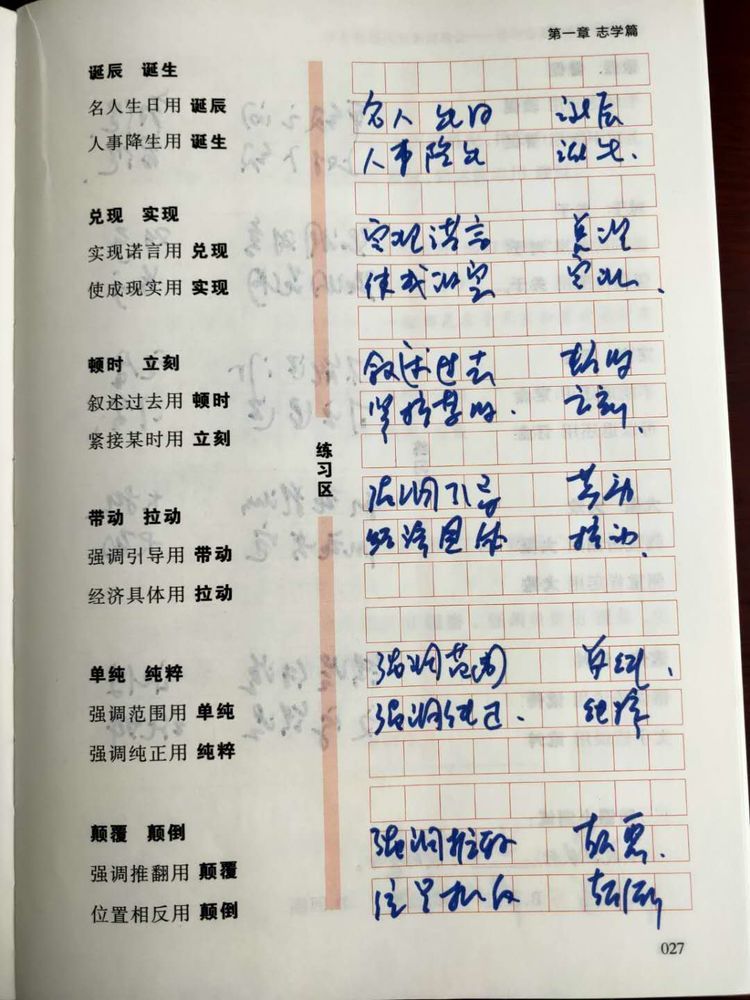 第一章 志学篇
诞辰 诞生
名人生日用 诞辰
名人生日 诞辰
人事降生用 诞生
人事降生 诞生.
兑现 实现
实现诺言用 兑现
实现诺言 兑现
使成现实用 实现
使成现实 实现.
顿时 立刻
叙述过去用 顿时
叙述过去 顿时
紧接某时用 立刻
紧接某时. 立刻.
练习区
带动 拉动
强调引导用 带动
强调引导 带动
经济具体用 拉动
经济具体 拉动.
单纯 纯粹
强调范围用 单纯
强调范围 单纯.
强调纯正用 纯粹
强调纯正. 纯粹
颠覆 颠倒
强调推翻用 颠覆
强调推翻 颠覆.
位置相反用 颠倒
位置相反 颠倒
027